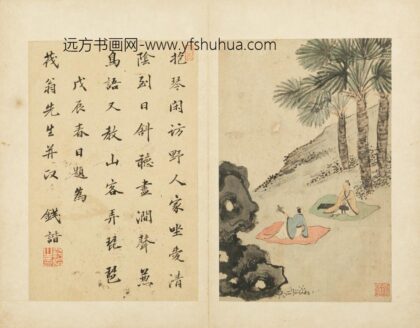 远方书画网-www.yfshuhua.com
抱琴闲訪野人家坐愛清
陰到日斜聽盡澗聲兼
鳥語又教山客弄琵琶
戊辰春日題為
茂翁先生并正
錢諧